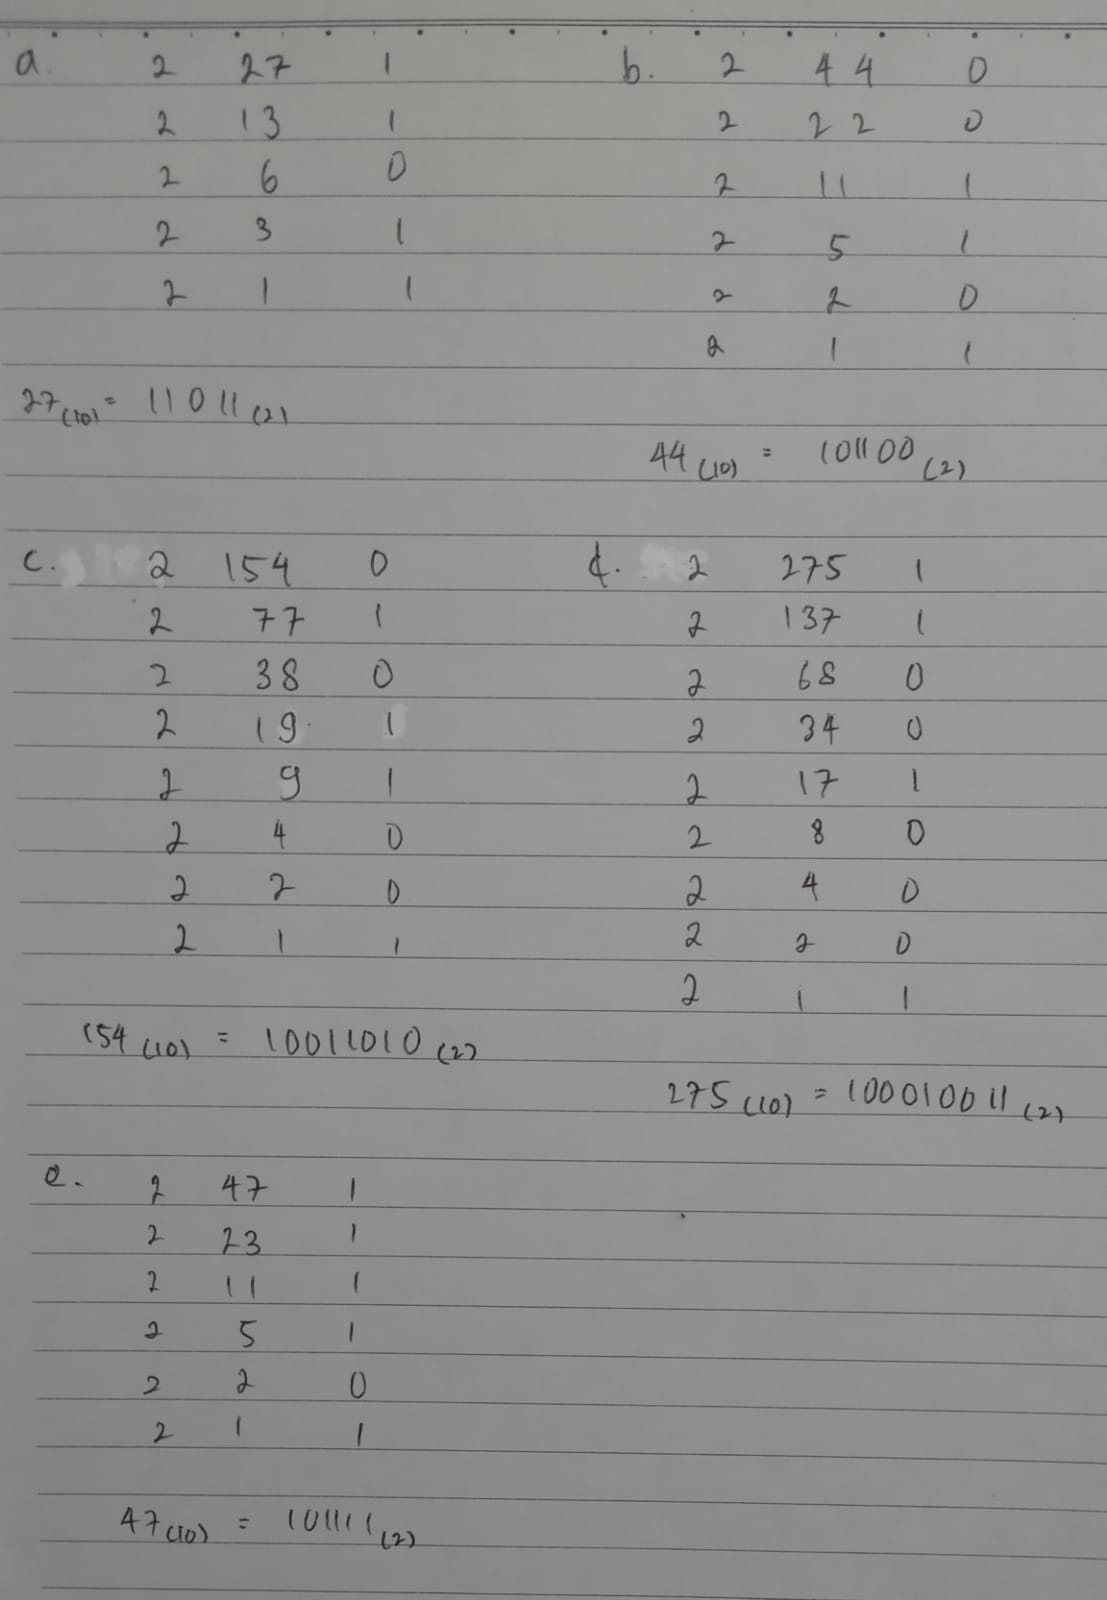 a. 2 27 1
2 13 1
2 6 0
2 3 1
2 1 1
27(10) = 11011(2)
b. 2 44 0
2 22 0
2 11 1
2 5 1
2 2 0
2 1 1
44(10) = 101100(2)
c. 2 154 0
2 77 1
2 38 0
2 19 1
2 9 1
2 4 0
2 2 0
2 1 1
154(10) = 10011010(2)
d. 2 275 1
2 137 1
2 68 0
2 34 0
2 17 1
2 8 0
2 4 0
2 2 0
2 1 1
275(10) = 100010011(2)
e. 2 47 1
2 23 1
2 11 1
2 5 1
2 2 0
2 1 1
47(10) = 101111(2)